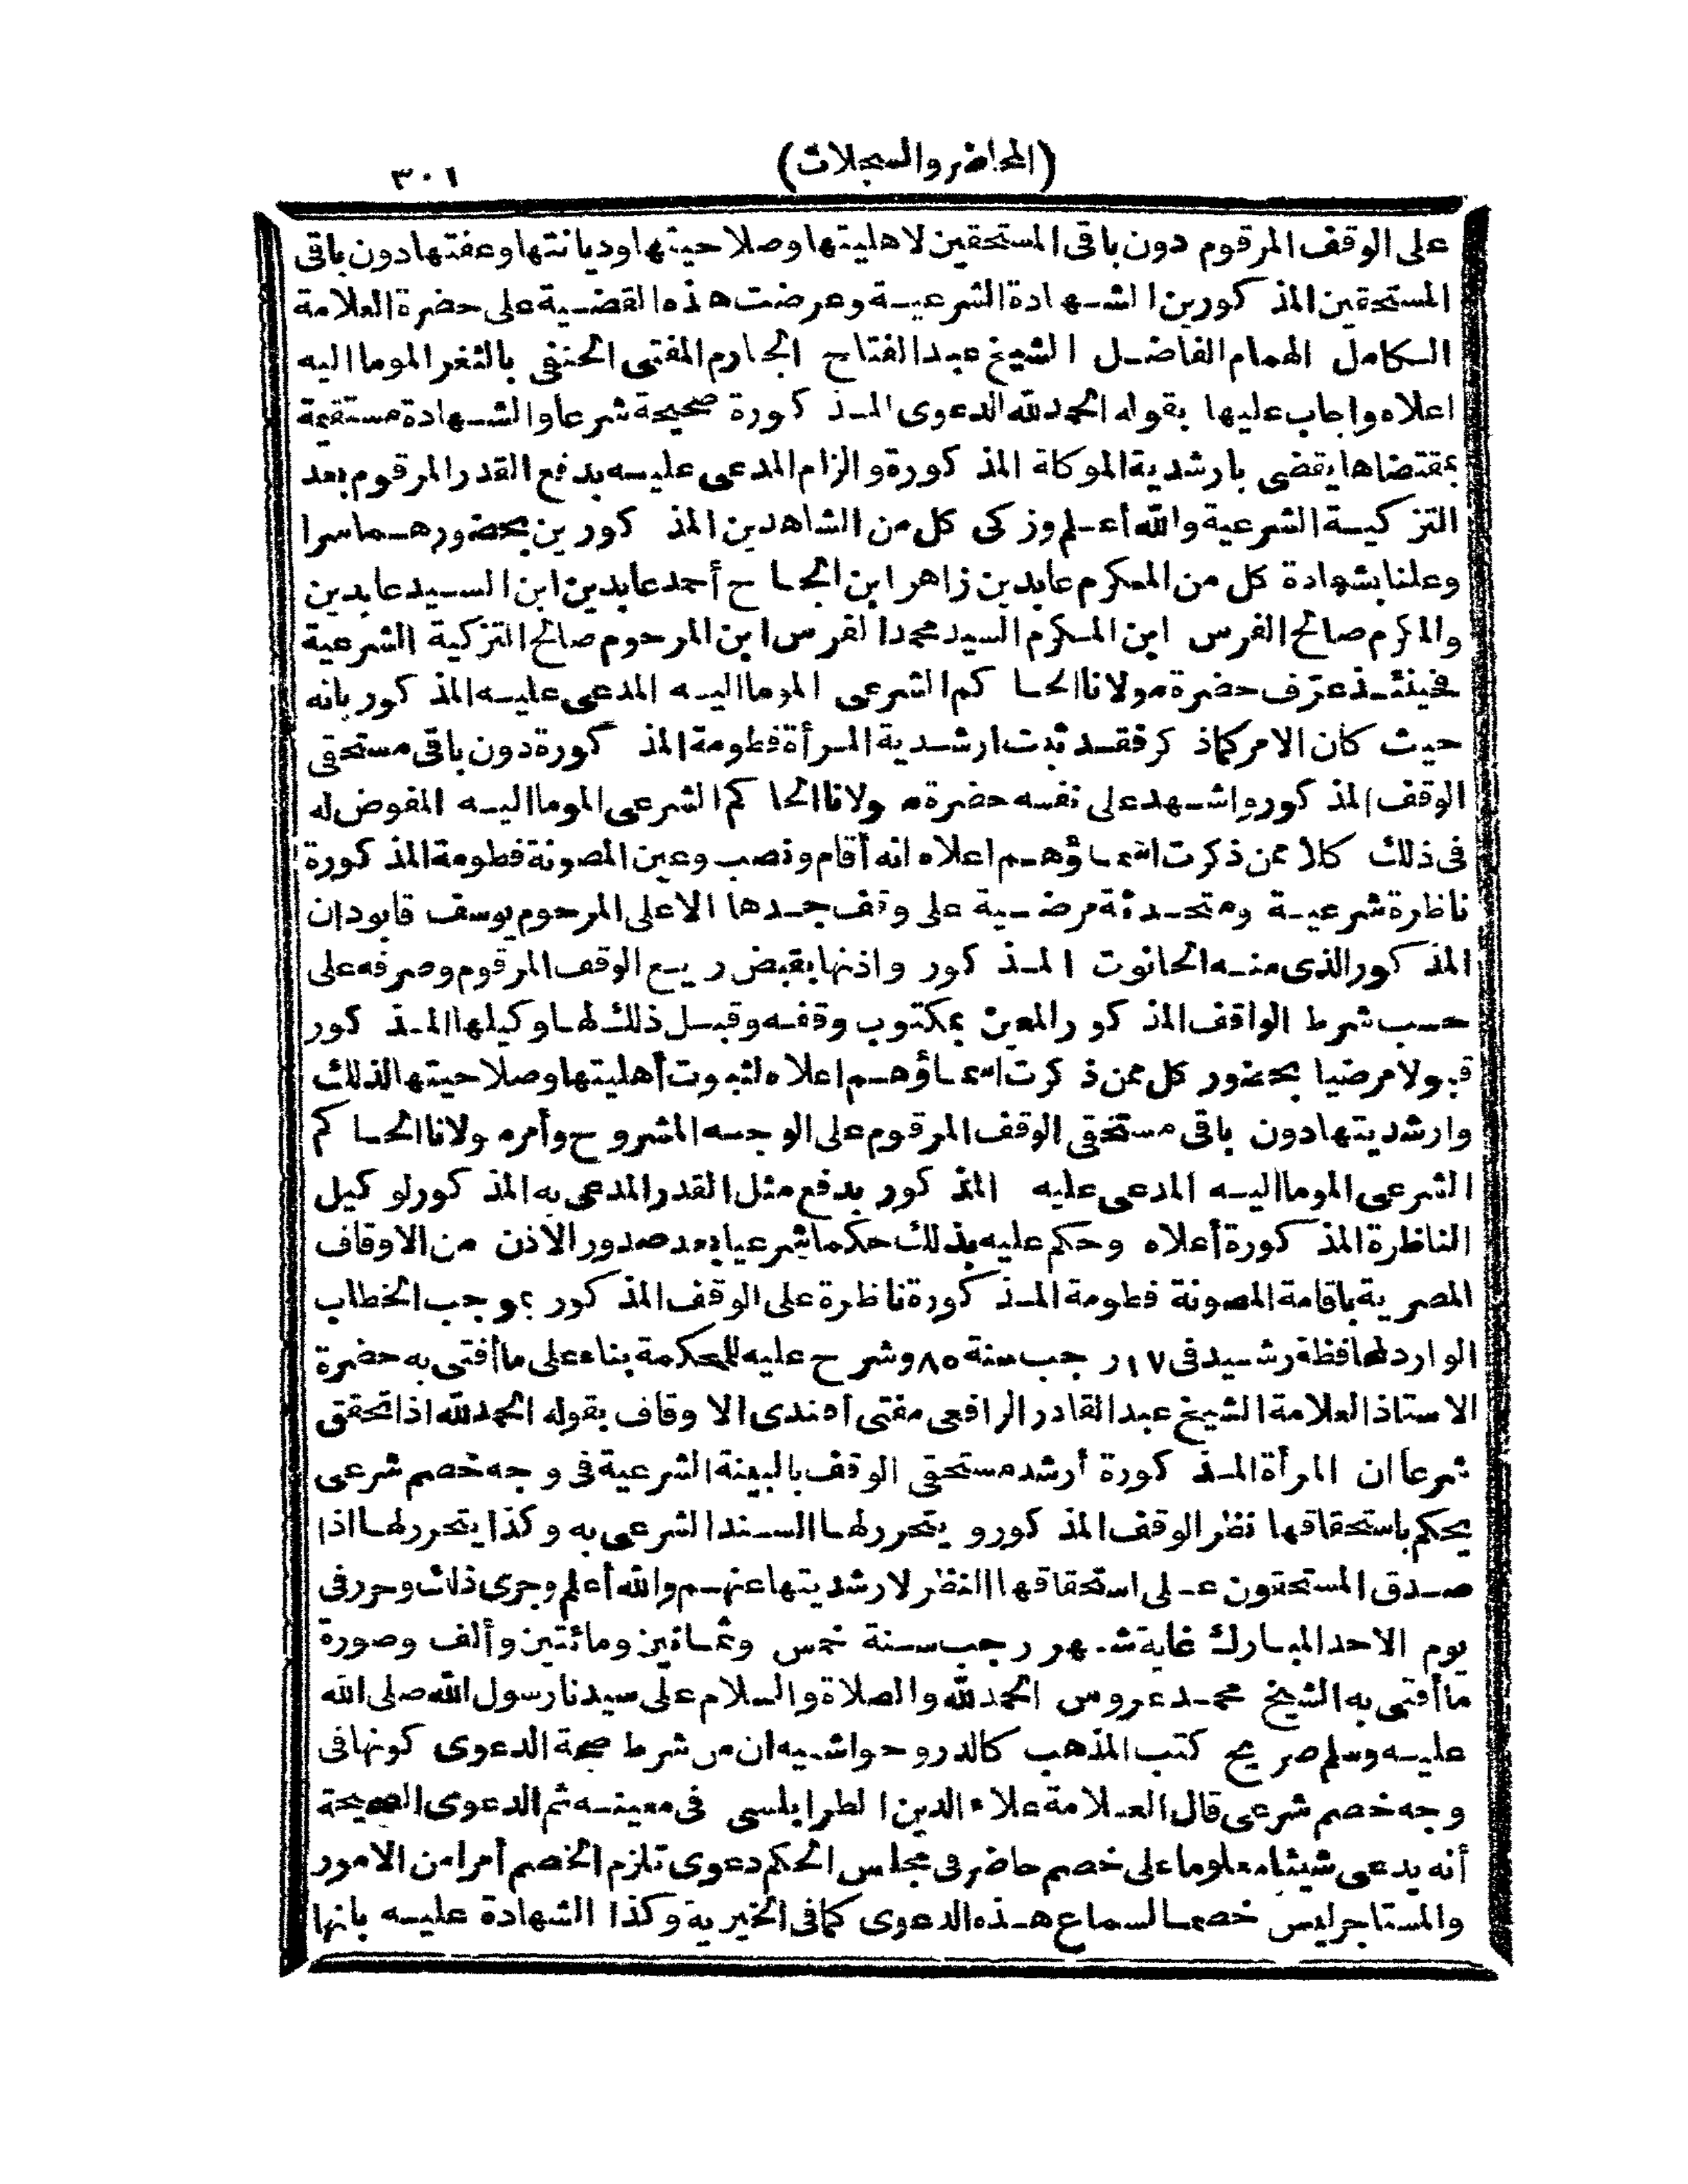 (المحاضر والسجلات)
٣٠١
على الوقف المرقوم دون باقى المستحقين لاهليتها وصلاحيتها وديانتها وعفتها دون باقى
المستحقين المذكورين الشهادة الشرعية وعرضت هذه القضية على حضرة العلامة
الكامل الهمام الفاضل الشيخ عبد الفتاح الجارم المفتى الحنفى بالثغر الموما اليه
اعلاه واجاب عليها بقوله الحمد لله الدعوى المذكورة صحيحة شرعا والشهادة مستقيمة
بمقتضاها يقضى بارشدية الموكلة المذكورة والزام المدعى عليه بدفع القدر المرقوم بعد
التزكية الشرعية والله أعلم وزكى كل من الشاهدين المذكورين بحضورهما سرا
وعلنا بشهادة كل من المكرم عابدين زاهر ابن الحاج أحمد عابدين ابن السيد عابدين
والمكرم صالح الفرس ابن المكرم السيد محمد الفرس ابن المرحوم صالح التزكية الشرعية
فحينئذ عرّف حضرة مولانا الحاكم الشرعى الموما اليه المدعى عليه المذكور بانه
حيث كان الامر كما ذكر فقد ثبت ارشدية المرأة فطومة المذكورة دون باقى مستحقى
الوقف المذكور واشهد على نفسه حضرة مولانا الحاكم الشرعى الموما اليه المفوض له
فى ذلك كلا ممن ذكرت اسماؤهم اعلاه انه أقام ونصب وعين المصونة فطومة المذكورة
ناظرة شرعية ومتحدثة مرضية على وقف جدها الاعلى المرحوم يوسف قابودان
المذكور الذى منه الحانوت المذكور واذنها بقبض ريع الوقف المرقوم وصرفه على
حسب شرط الواقف المذكور المعين بمكتوب وقفه وقبل ذلك لها وكيلها المذكور
قبولا مرضيا بحضور كل ممن ذكرت اسماؤهم اعلاه لثبوت أهليتها وصلاحيتها لذلك
وارشديتها دون باقى مستحقى الوقف المرقوم على الوجه المشروح وأمر مولانا الحاكم
الشرعى الموما اليه المدعى عليه المذكور بدفع مثل القدر المدعى به المذكور لوكيل
الناظرة المذكورة أعلاه وحكم عليه بذلك حكما شرعيا بعد صدور الاذن من الاوقاف
المصرية باقامة المصونة فطومة المذكورة ناظرة على الوقف المذكور بموجب الخطاب
الوارد لمحافظة رشيد فى ١٧ رجب سنة ٨٥ وشرح عليه للمحكمة بناء على ما أفتى به حضرة
الاستاذ العلامة الشيخ عبد القادر الرافعى مفتى أفندى الاوقاف بقوله الحمد لله اذا تحقق
شرعا ان المرأة المذكورة أرشد مستحقى الوقف بالبينة الشرعية فى وجه خصم شرعى
يحكم باستحقاقها نظر الوقف المذكور ويتحرر لها السند الشرعى به وكذا يتحرر لها اذا
صدق المستحقون على استحقاقها النظر لارشديتها عنهم والله أعلم وجرى ذلك وحرر فى
يوم الاحد المبارك غاية شهر رجب سنة خمس وثمانين ومائتين وألف وصورة
ما أفتى به الشيخ محمد عروس الحمد لله والصلاة والسلام على سيدنا رسول الله صلى الله
عليه وسلم صريح كتب المذهب كالدر وحواشيه ان من شرط صحة الدعوى كونها فى
وجه خصم شرعى قال العلامة علاء الدين الطرابلسى فى معينه ثم الدعوى الصحيحة
أنه يدعى شيئا معلوما على خصم حاضر فى مجلس الحكم دعوى تلزم الخصم أمرا من الامور
والمستاجر ليس خصما لسماع هذه الدعوى كما فى الخيرية وكذا الشهادة عليه بانها